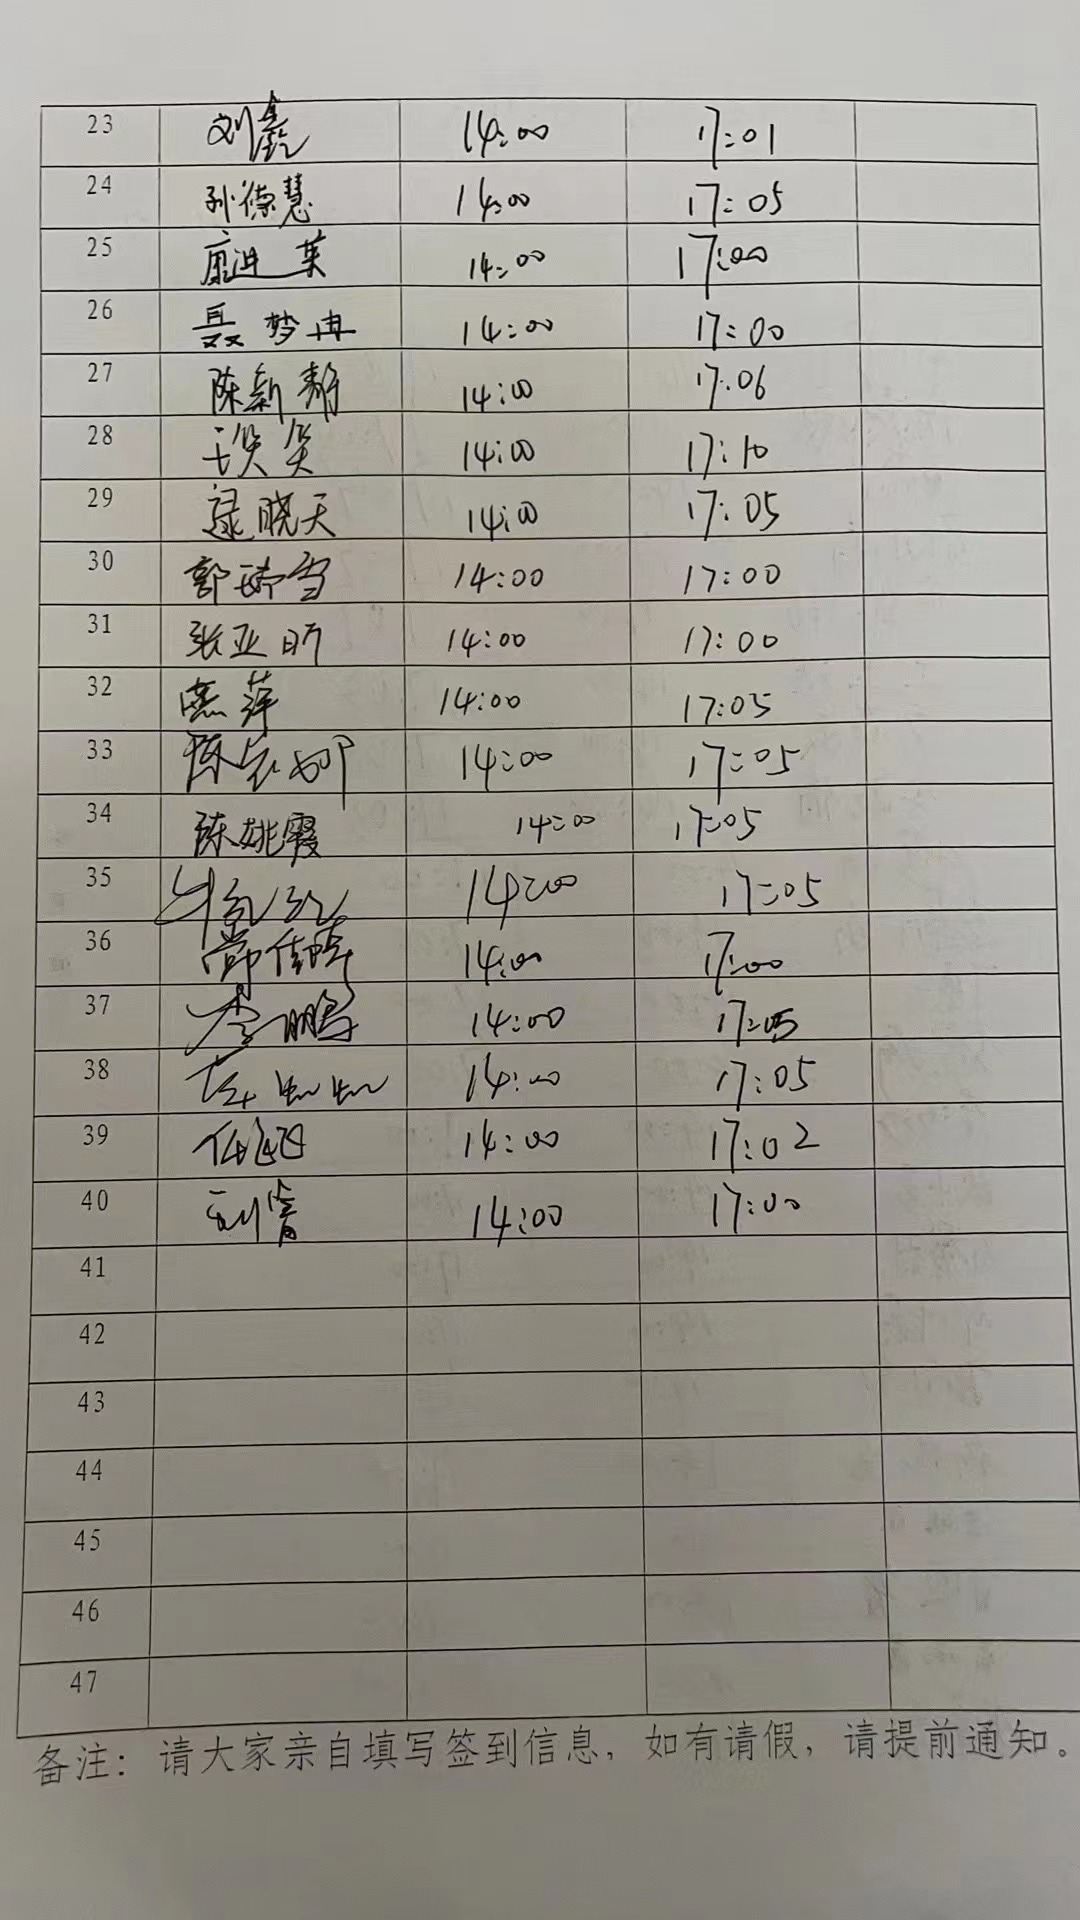 23 刘鑫 14:00 17:01
24 孙德慧 14:00 17:05
25 康进英 14:00 17:00
26 聂梦冉 14:00 17:00
27 陈新静 14:00 17:06
28 笑 14:00 17:10
29 逯晓天 14:00 17:05
30 郭瑞雪 14:00 17:00
31 张亚昕 14:00 17:00
32 燕萍 14:00 17:05
33 陈 14:00 17:05
34 陈姚霞 14:00 17:05
35 14:00 17:05
36 佳晴 14:00 17:00
37 李鹏 14:00 17:05
38 14:00 17:05
39 任 14:00 17:02
40 刘 14:00 17:00
41
42
43
44
45
46
47
备注：请大家亲自填写签到信息，如有请假，请提前通知。